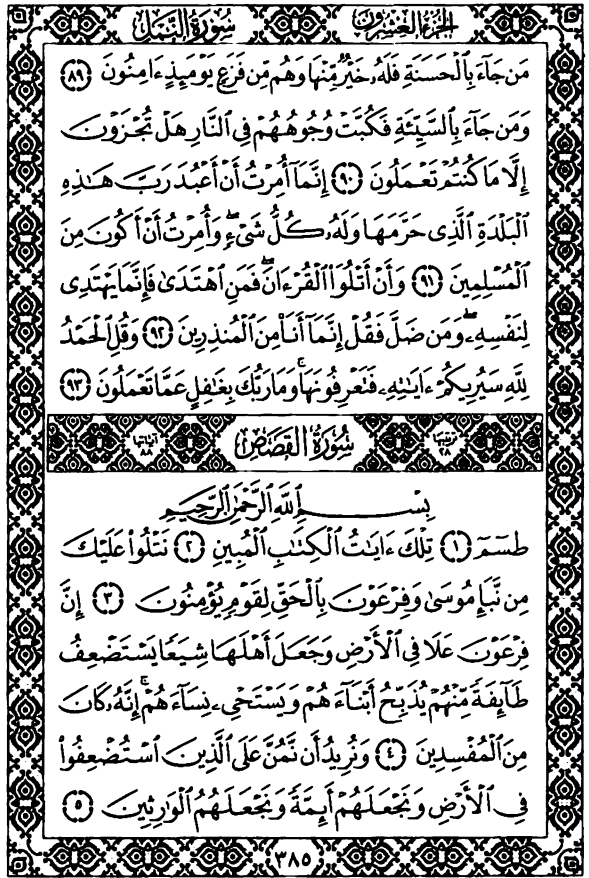 الجزء العشرون سورة النمل
مَن جَآءَ بِالْحَسَنَةِ فَلَهُۥ خَيْرٌ مِّنْهَا وَهُم مِّن فَزَعٍ يَوْمَئِذٍ ءَامِنُونَ ٨٩
وَمَن جَآءَ بِالسَّيِّئَةِ فَكُبَّتْ وُجُوهُهُمْ فِي النَّارِ هَلْ تُجْزَوْنَ
إِلَّا مَا كُنتُمْ تَعْمَلُونَ ٩٠ إِنَّمَآ أُمِرْتُ أَنْ أَعْبُدَ رَبَّ هَٰذِهِ
الْبَلْدَةِ الَّذِي حَرَّمَهَا وَلَهُۥ كُلُّ شَيْءٍ ۖ وَأُمِرْتُ أَنْ أَكُونَ مِنَ
الْمُسْلِمِينَ ٩١ وَأَنْ أَتْلُوَا۟ الْقُرْءَانَ ۖ فَمَنِ اهْتَدَىٰ فَإِنَّمَا يَهْتَدِي
لِنَفْسِهِۦ ۖ وَمَن ضَلَّ فَقُلْ إِنَّمَآ أَنَا۠ مِنَ الْمُنذِرِينَ ٩٢ وَقُلِ الْحَمْدُ
لِلَّهِ سَيُرِيكُمْ ءَايَٰتِهِۦ فَتَعْرِفُونَهَا ۚ وَمَا رَبُّكَ بِغَٰفِلٍ عَمَّا تَعْمَلُونَ ٩٣
ترتيبها ٢٨ سورة القصص آياتها ٨٨
بِسْمِ اللَّهِ الرَّحْمَٰنِ الرَّحِيمِ
طسٓمٓ ١ تِلْكَ ءَايَٰتُ الْكِتَٰبِ الْمُبِينِ ٢ نَتْلُوا۟ عَلَيْكَ
مِن نَّبَإِ مُوسَىٰ وَفِرْعَوْنَ بِالْحَقِّ لِقَوْمٍ يُؤْمِنُونَ ٣ إِنَّ
فِرْعَوْنَ عَلَا فِي الْأَرْضِ وَجَعَلَ أَهْلَهَا شِيَعًا يَسْتَضْعِفُ
طَآئِفَةً مِّنْهُمْ يُذَبِّحُ أَبْنَآءَهُمْ وَيَسْتَحْيِۦ نِسَآءَهُمْ ۚ إِنَّهُۥ كَانَ
مِنَ الْمُفْسِدِينَ ٤ وَنُرِيدُ أَن نَّمُنَّ عَلَى الَّذِينَ اسْتُضْعِفُوا۟
فِي الْأَرْضِ وَنَجْعَلَهُمْ أَئِمَّةً وَنَجْعَلَهُمُ الْوَٰرِثِينَ ٥
٣٨٥